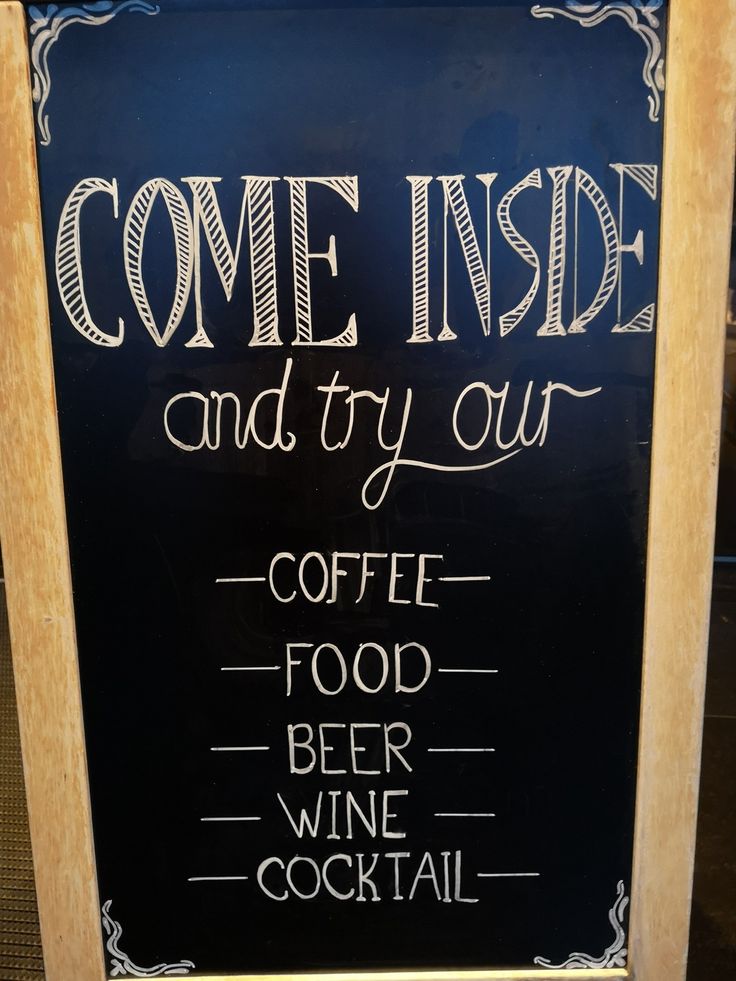 COME INSIDE
and try our
—COFFEE—
—FOOD—
—BEER—
—WINE—
—COCKTAIL—